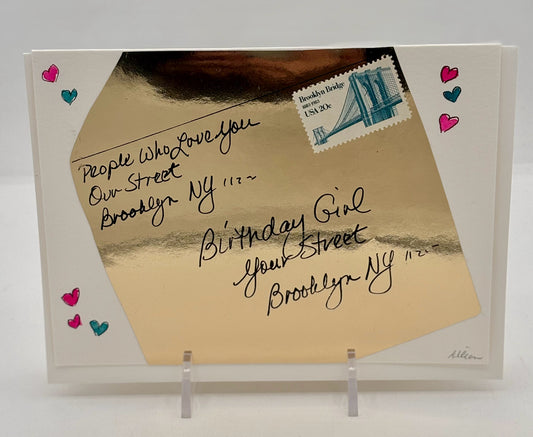 Brooklyn Bridge
1883-1983
USA 20c
People Who Love You
Our Street
Brooklyn NY 112--
Birthday Girl
Your Street
Brooklyn NY 112--